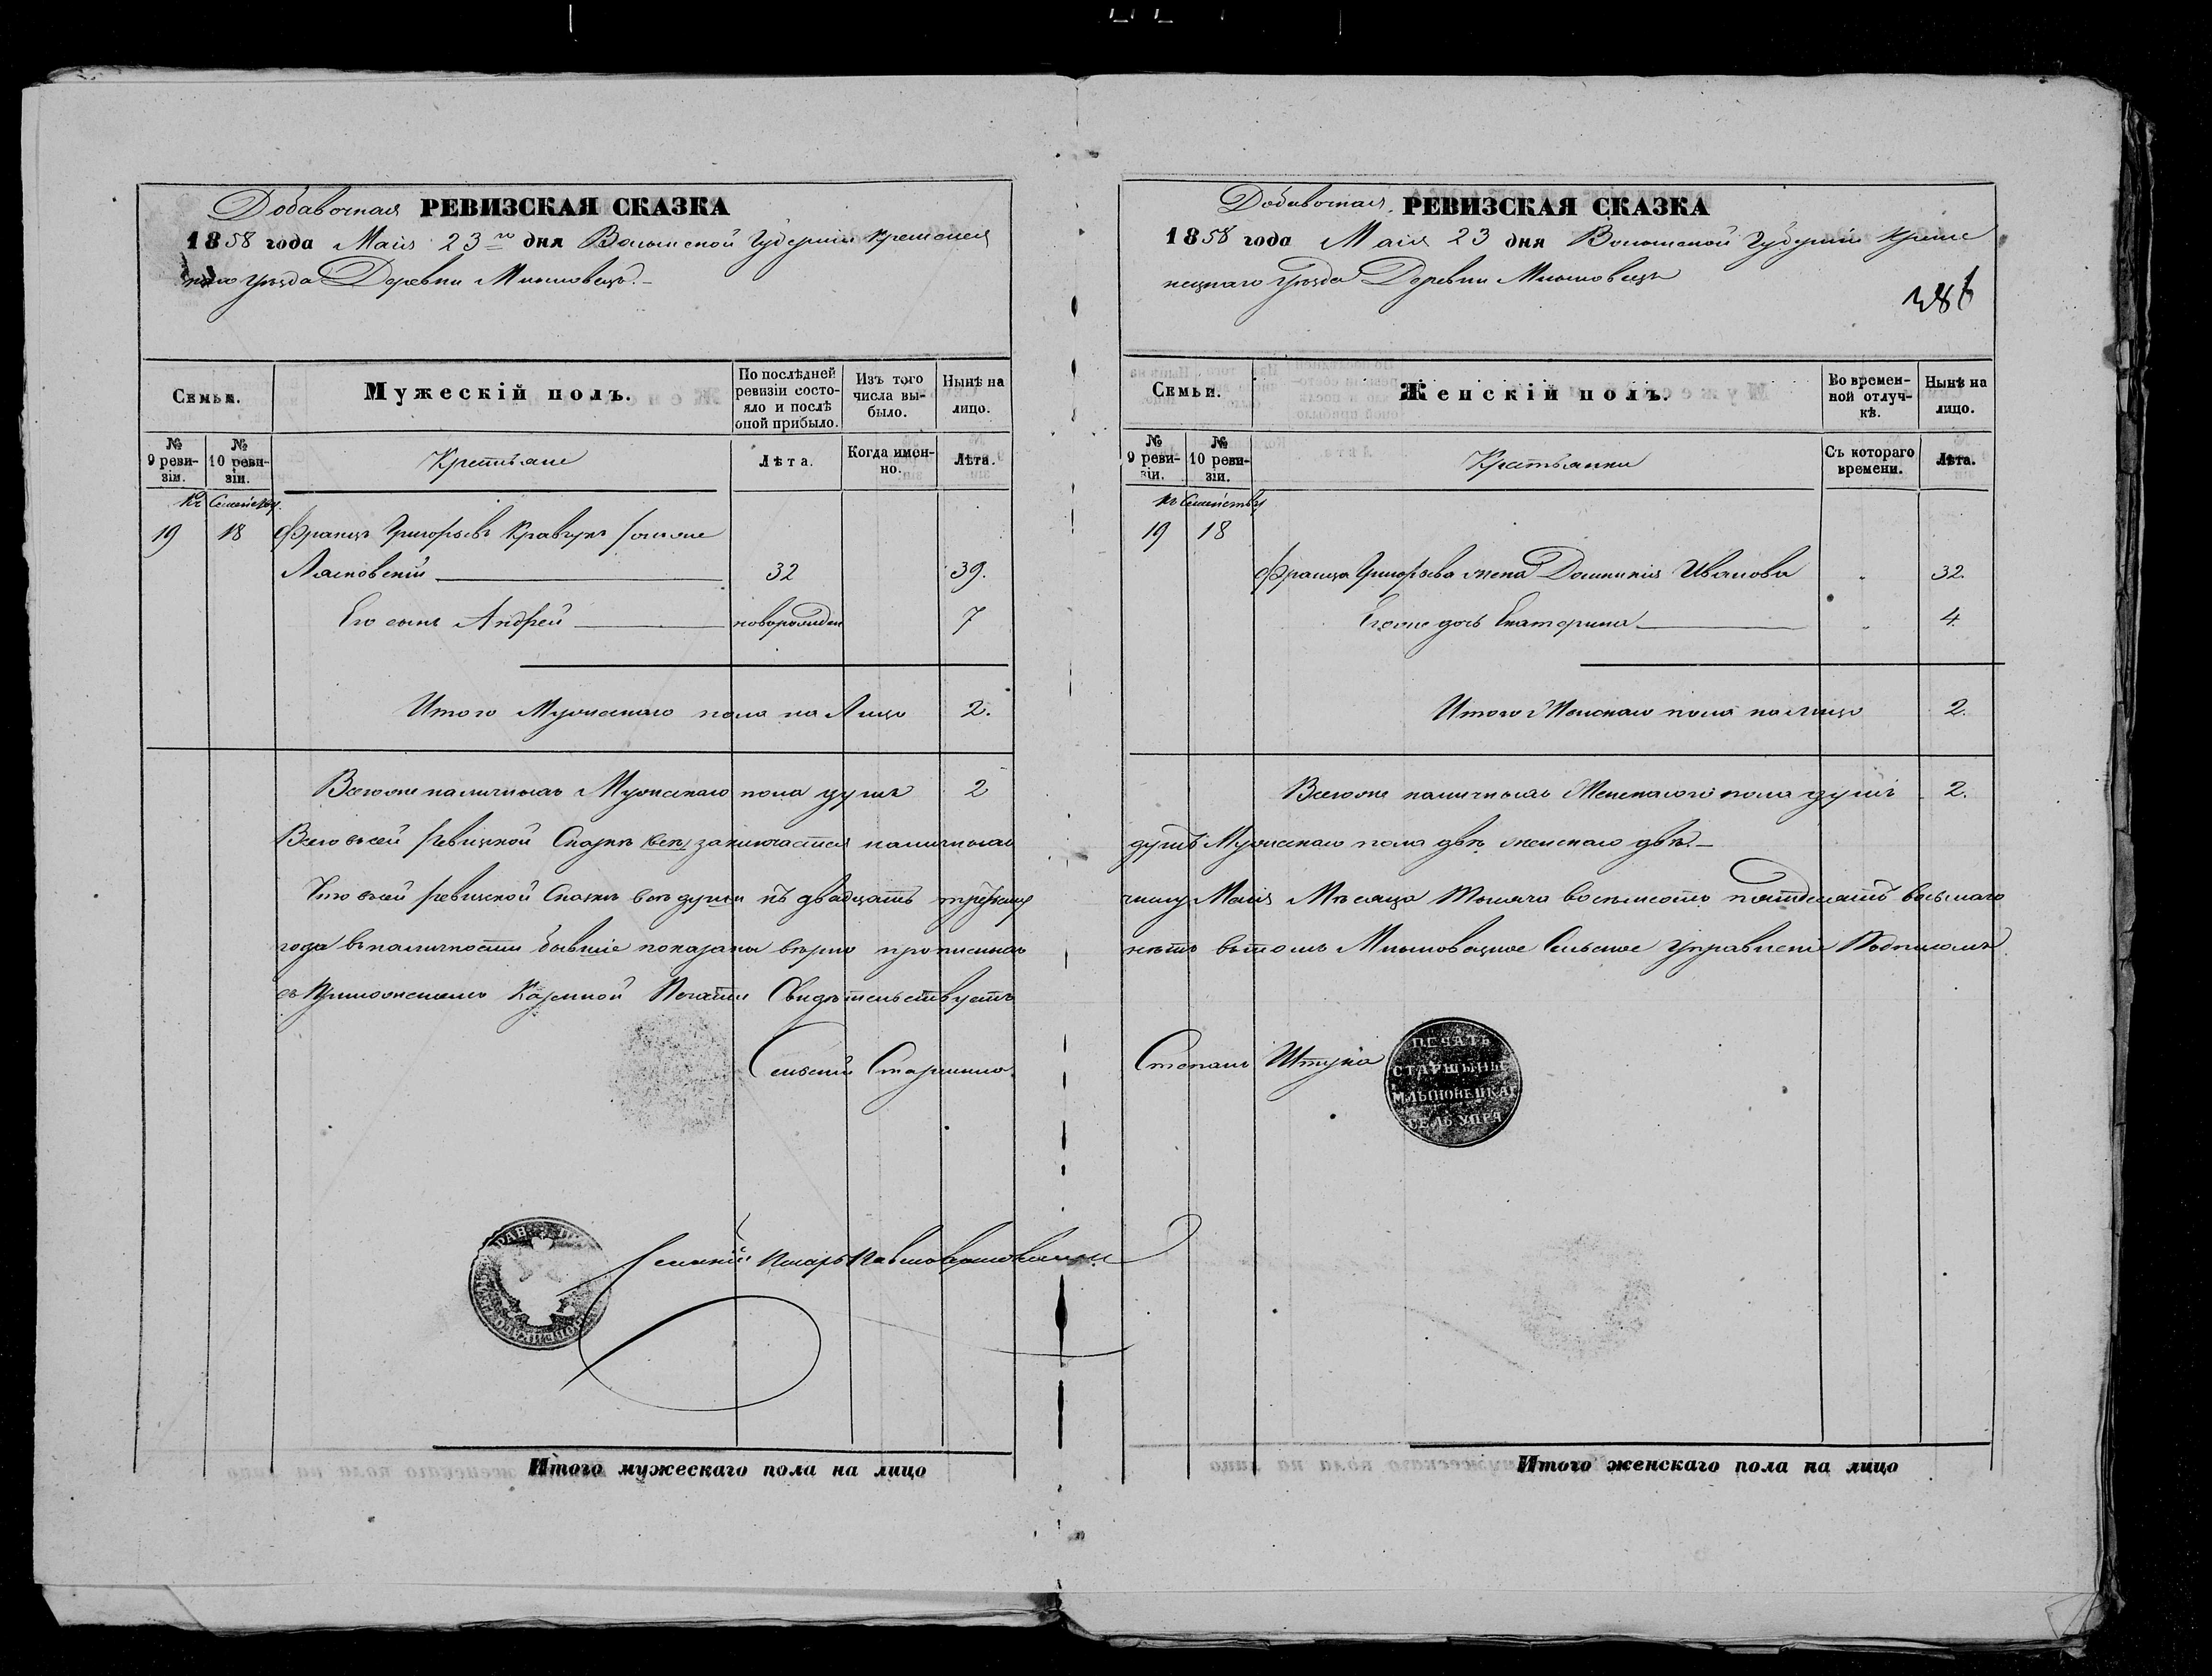 Добавочная РЕВИЗСКАЯ СКАЗКА
1858 года Маія 23го дня Волынской Губерніи Кременец
каго уѣзда Деревни Млыновецъ.
Семьи.
Мужескій полъ.
По послѣдней ревизіи состояло и послѣ оной прибыло.
Изъ того числа выбыло.
Нынѣ на лицо.
№ 9 ревизіи.
№ 10 ревизіи.
Крестьяне
Лѣта.
Когда именно.
Лѣта.
Къ Семейству.
19 18 Францъ Григорьевъ Кравчукъ онже
Лясковскій 32 39.
Его сынъ Андрей новорожден 7
Итого Мужескаго пола на Лицо 2.
Всегоже наличныхъ Мужескаго пола душъ 2
Всего въ сей ревизской Сказкѣ заключается наличныхъ
Что въ сей ревизской Сказкѣ всѣ души къ двадцать третьему
года въ наличности бывшіе показаны вѣрно и прописныхъ
съ Приложеніемъ Казенной Печати Свидѣтельствуетъ
Сельскій Старшина
Сельскій Писарь
Итого мужескаго пола на лицо
Добавочная РЕВИЗСКАЯ СКАЗКА
1858 года Маія 23 дня Волынской Губерніи Креме
нецкаго Уѣзда Деревни Млыновецъ
386
Семьи.
Женскій полъ.
Во временной отлучкѣ.
Нынѣ на лицо.
№ 9 ревизіи.
№ 10 ревизіи.
Крестьянки
Съ котораго времени.
Лѣта.
Къ Семейству
19 18
Франца Григорьева жена Доминикія Иванова 32.
Егоже дочь Екатерина 4.
Итого Женскаго пола на лицо 2.
Всегоже наличныхъ Женскаго пола душъ 2.
душъ Мужескаго пола двѣ женскаго двѣ.
числу Маія Мѣсяца Тысяча восемьсотъ пятьдесятъ восьмаго
нѣтъ въ томъ Млыновецкое Сельское Управленіе Подписомъ
Степанъ Штука
ПЕЧАТЬ
СТАРШЫНЫ
МЛЫНОВЕЦКАГ
СЕЛЬ УПРА
Итого женскаго пола на лицо